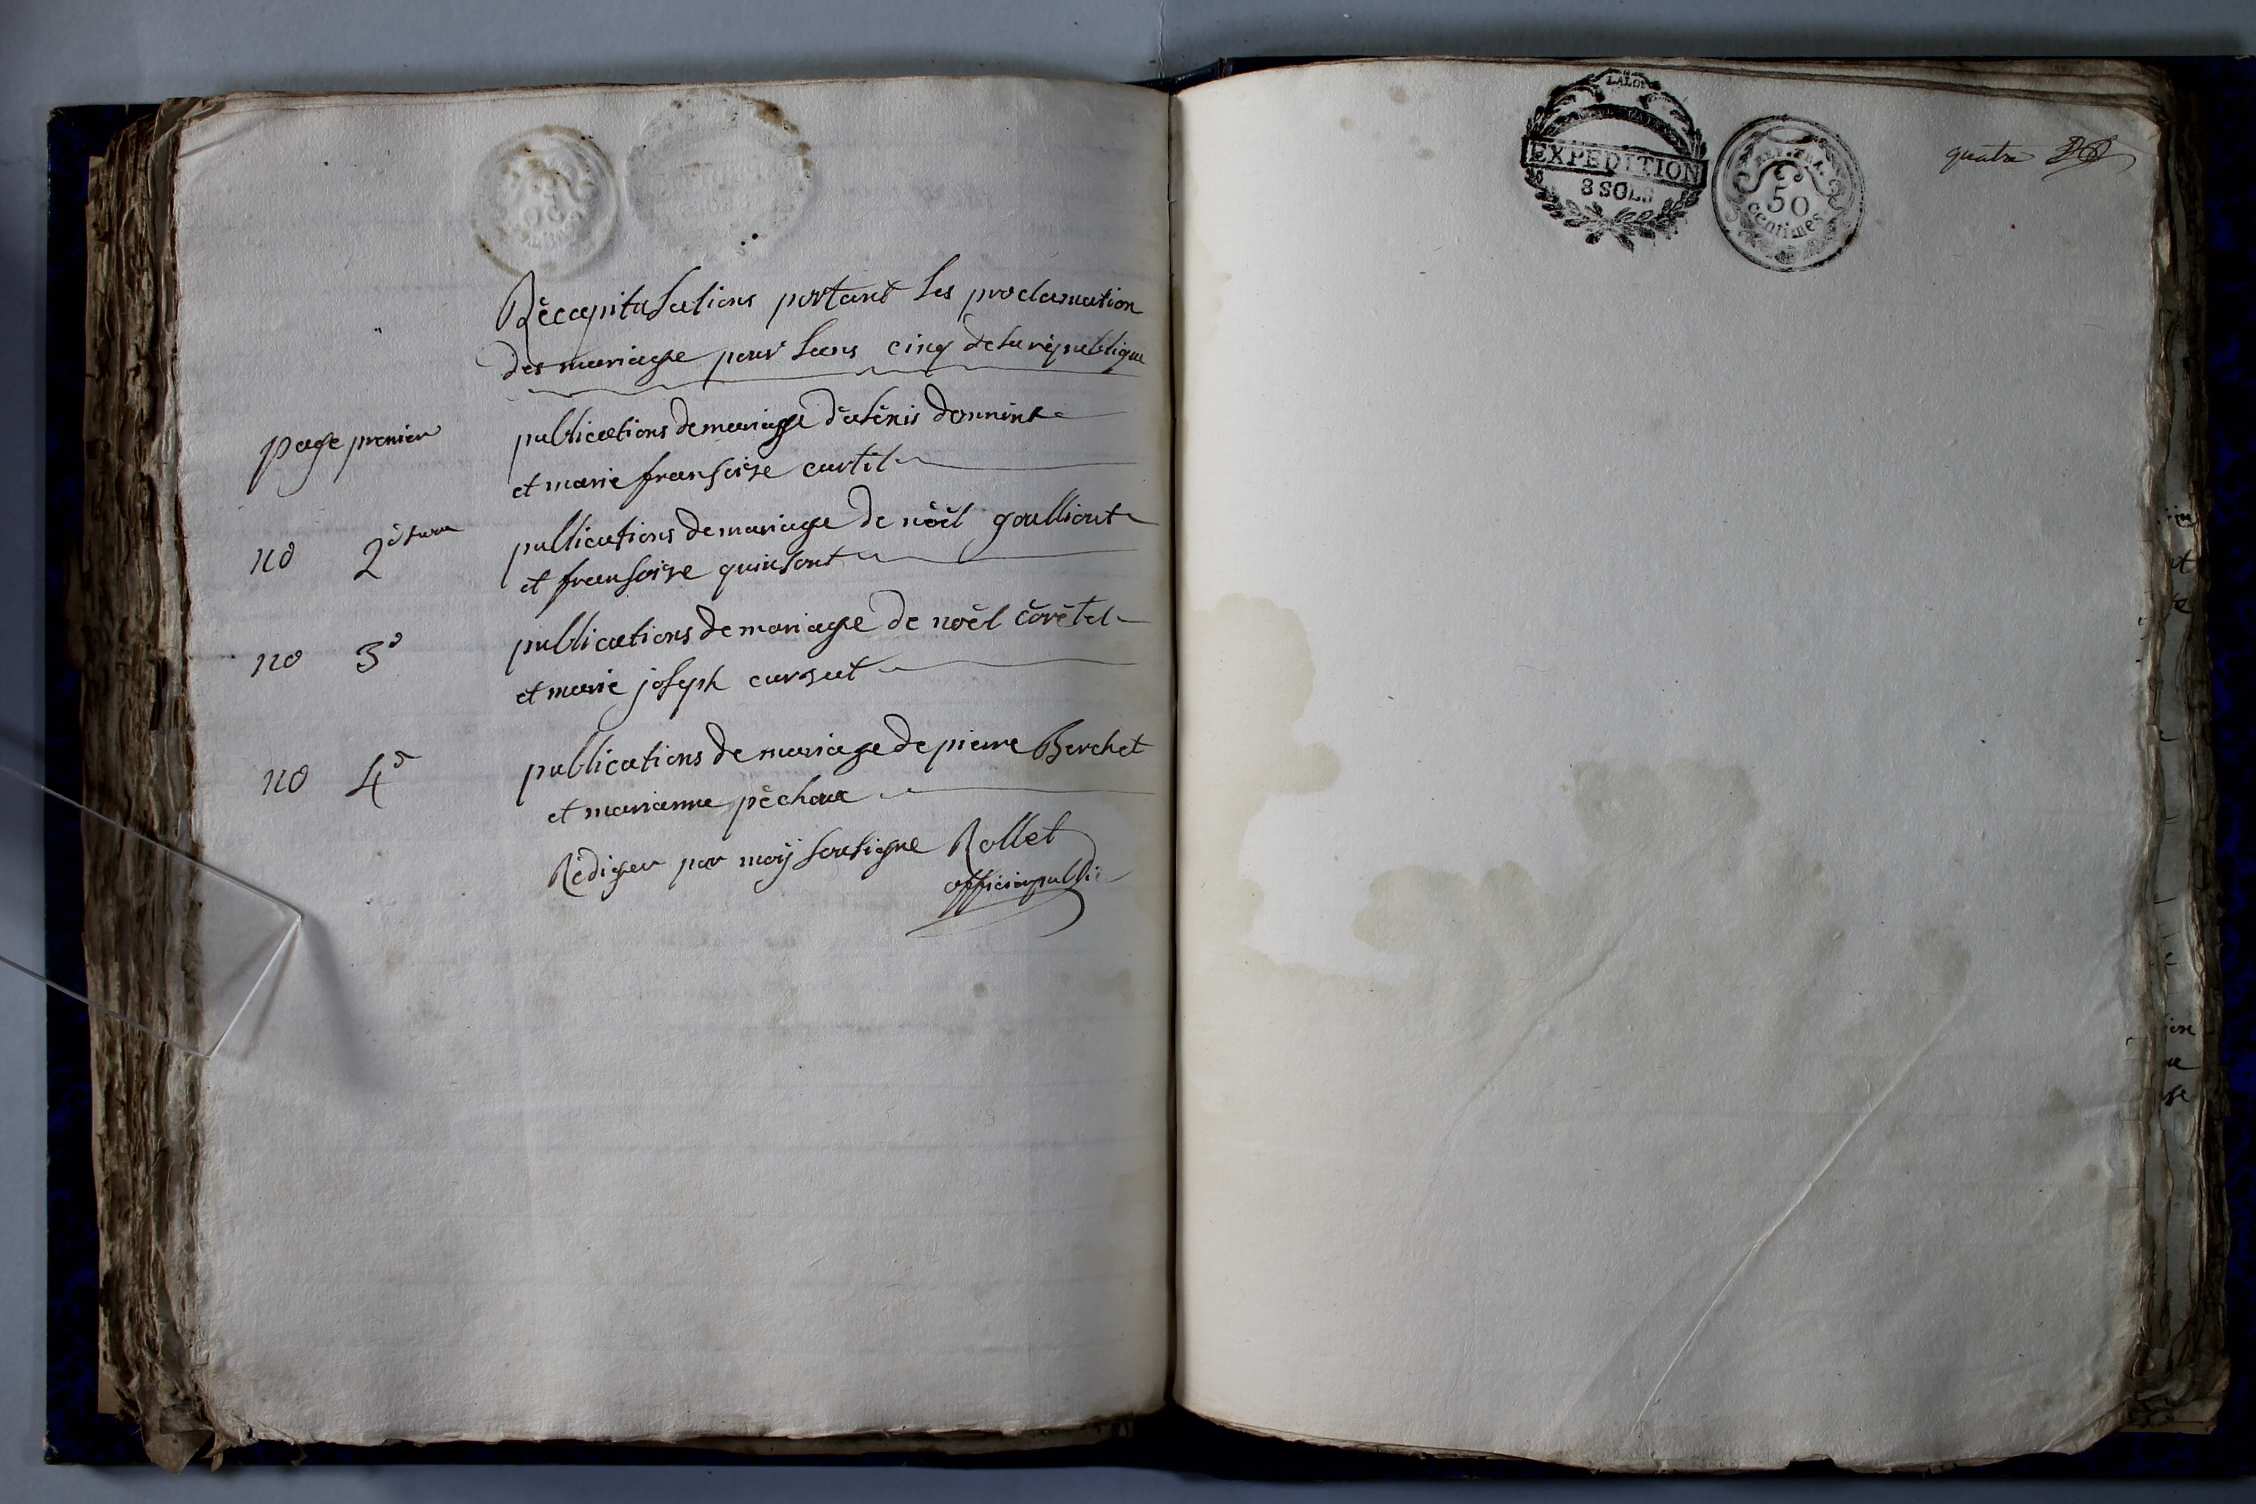 Récapitulations portant les proclamation
des mariage pour lans cinq de la république
page premier publications de mariage d'alénis donnint
et marie fransoise curtil
no 2 publications de mariage de noël goulliout
et fransoise quinsont
no 3e publications de mariage de noël corétel
et marie joseph curout
no 4e publications de mariage de pierre Berchet
et marianne péchoux
Rédiger par moÿ sousigne Rollet
officier public
EXPEDITION
8 SOLS
REP. FRA.
50
centimes
quatre